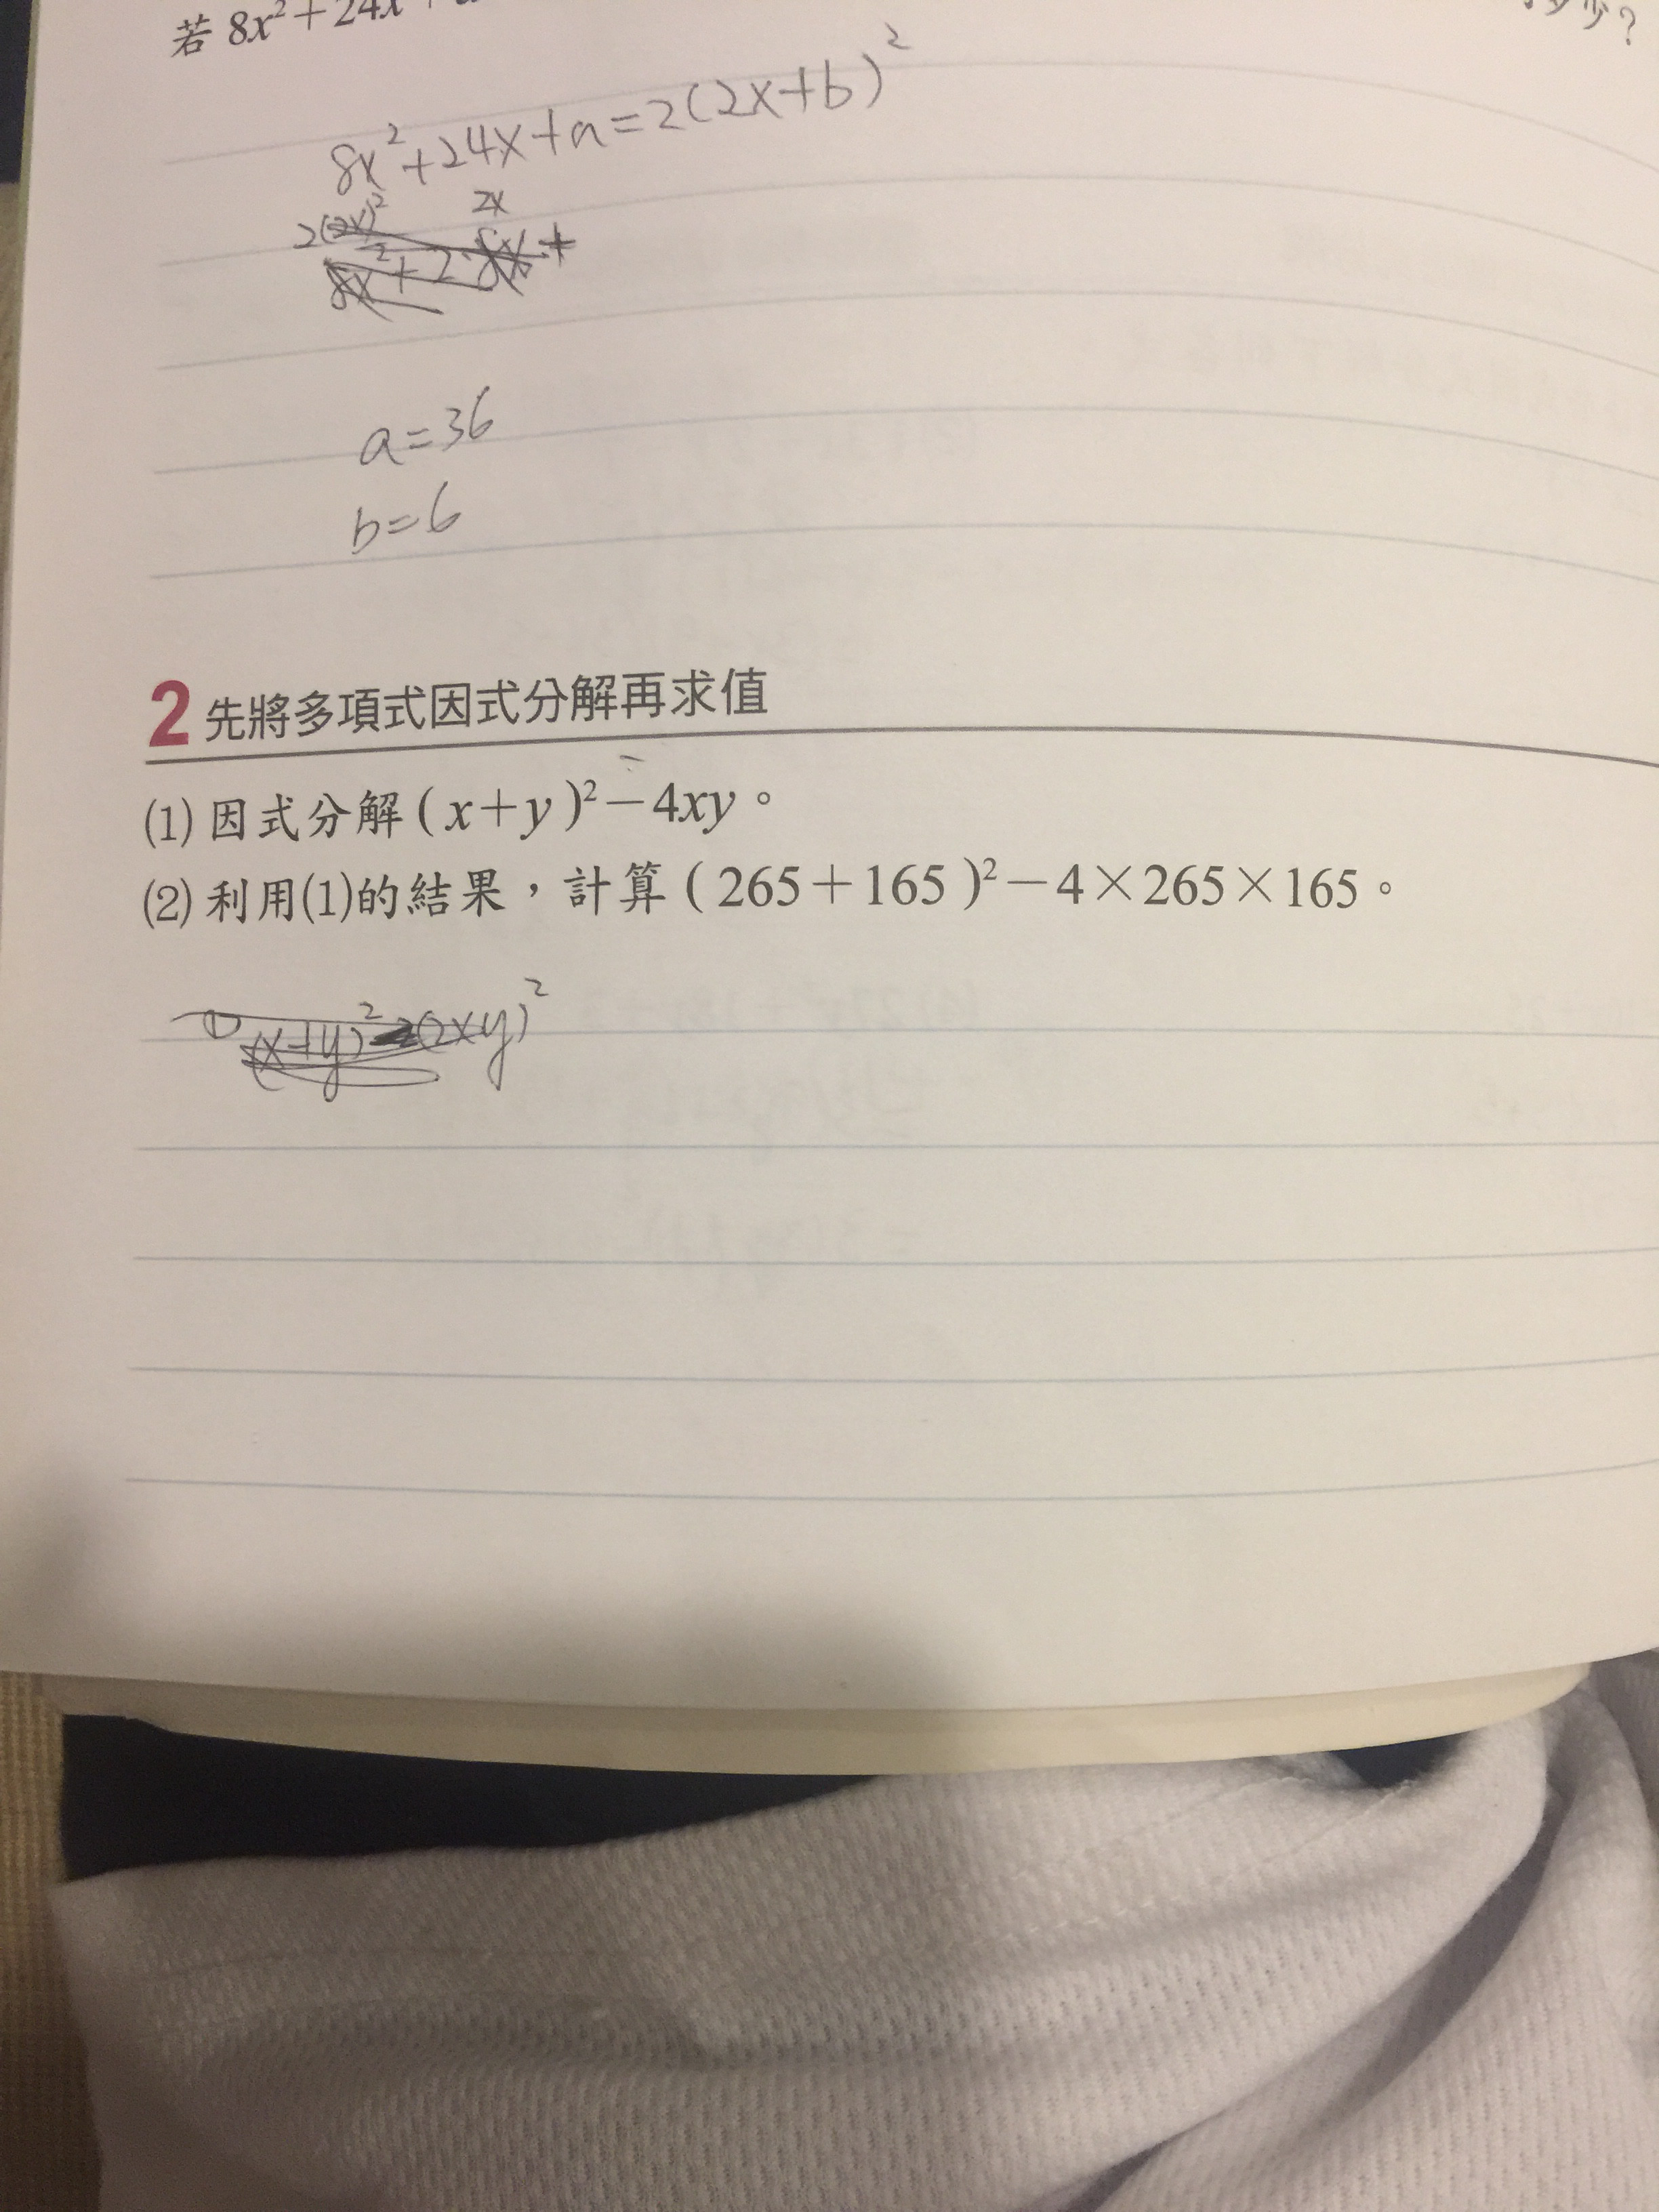 若 8x²+24x
少?
8x²+24x+a=2(2x+b)²
2(2x)² 2x
8x²+2·8x+
a=36
b=6
2 先將多項式因式分解再求值
(1) 因式分解(x+y)²-4xy。
(2) 利用(1)的結果，計算(265+165)²-4×265×165。
(x+y)² (2xy)²